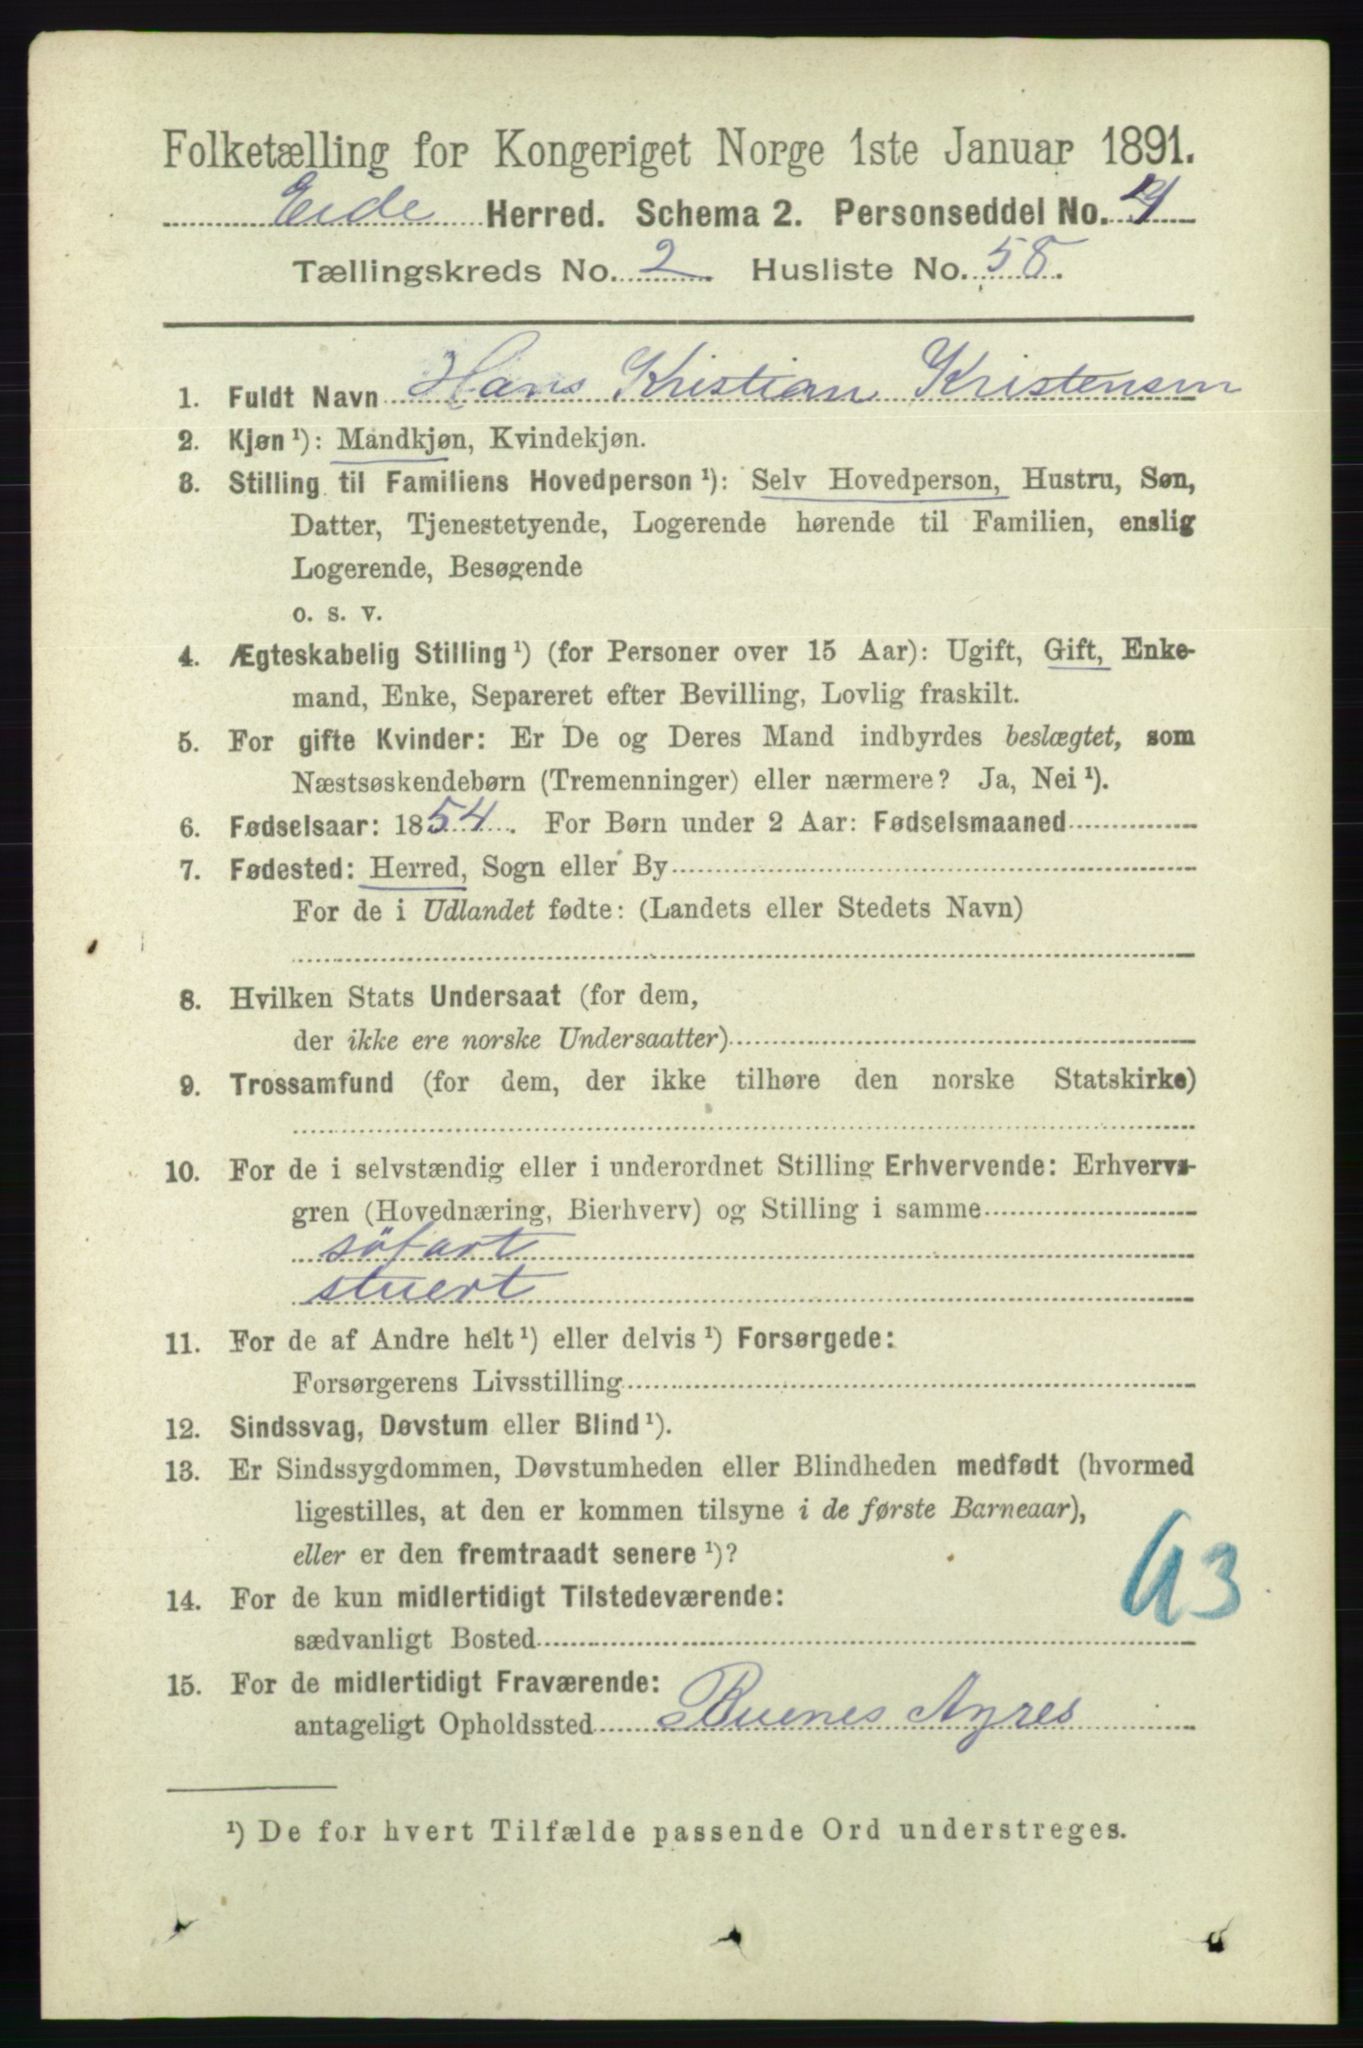 Folketælling for Kongeriget Norge 1ste Januar 1891.
Eide Herred. Schema 2. Personseddel No.
Tællingskreds No. 2 Husliste No. 58.
1. Fuldt Navn Hans Kristian Kristensen
2. Kjøn ¹): Mandkjøn, Kvindekjøn.
3. Stilling til Familiens Hovedperson ¹): Selv Hovedperson, Hustru, Søn,
Datter, Tjenestetyende, Logerende hørende til Familien, enslig
Logerende, Besøgende
o. s. v.
4. Ægteskabelig Stilling ¹) (for Personer over 15 Aar): Ugift, Gift, Enke-
mand, Enke, Separeret efter Bevilling, Lovlig fraskilt.
5. For gifte Kvinder: Er De og Deres Mand indbyrdes beslægtet, som
Næstsøskendebørn (Tremenninger) eller nærmere? Ja, Nei ¹).
6. Fødselsaar: 1854. For Børn under 2 Aar: Fødselsmaaned
7. Fødested: Herred, Sogn eller By
For de i Udlandet fødte: (Landets eller Stedets Navn)
8. Hvilken Stats Undersaat (for dem,
der ikke ere norske Undersaatter)
9. Trossamfund (for dem, der ikke tilhøre den norske Statskirke)
10. For de i selvstændig eller i underordnet Stilling Erhvervende: Erhvervs-
gren (Hovednæring, Bierhverv) og Stilling i samme
söfart
stuert
11. For de af Andre helt ¹) eller delvis ¹) Forsørgede:
Forsørgerens Livsstilling
12. Sindssvag, Døvstum eller Blind ¹).
13. Er Sindssygdommen, Døvstumheden eller Blindheden medfødt (hvormed
ligestilles, at den er kommen tilsyne i de første Barneaar),
eller er den fremtraadt senere ¹)?
14. For de kun midlertidigt Tilstedeværende:
sædvanligt Bosted
15. For de midlertidigt Fraværende:
antageligt Opholdssted Buenes Ayres
¹) De for hvert Tilfælde passende Ord understreges.